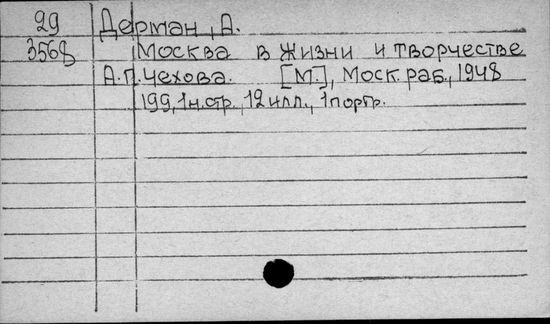 29 Дерман, А.
3568 Москва в жизни и творчестве
А.П.Чехова. [М.], Моск. раб., 1948
199, 1 н. стр., 12 илл., 1 портр.